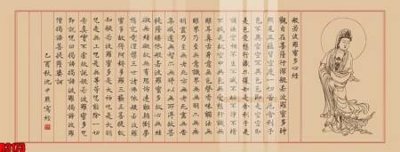 般若波羅蜜多心經
觀自在菩薩行深般若波羅蜜多時
照見五蘊皆空度一切苦厄舍利子
色不異空空不異色色即是空空即
是色受想行識亦復如是舍利子是
諸法空相不生不滅不垢不淨不增
不減是故空中無色無受想行識無
眼耳鼻舌身意無色聲香味觸法無
眼界乃至無意識界無無明亦無無
明盡乃至無老死亦無老死盡無苦
集滅道無智亦無得以無所得故菩
提薩埵依般若波羅蜜多故心無罣
礙無罣礙故無有恐怖遠離顛倒夢
想究竟涅槃三世諸佛依般若波羅
蜜多故得阿耨多羅三藐三菩提故
知般若波羅蜜多是大神咒是大明
咒是無上咒是無等等咒能除一切
苦真實不虛故說般若波羅蜜多咒
即說咒曰揭諦揭諦波羅揭諦波羅
僧揭諦菩提薩婆訶
乙酉秋